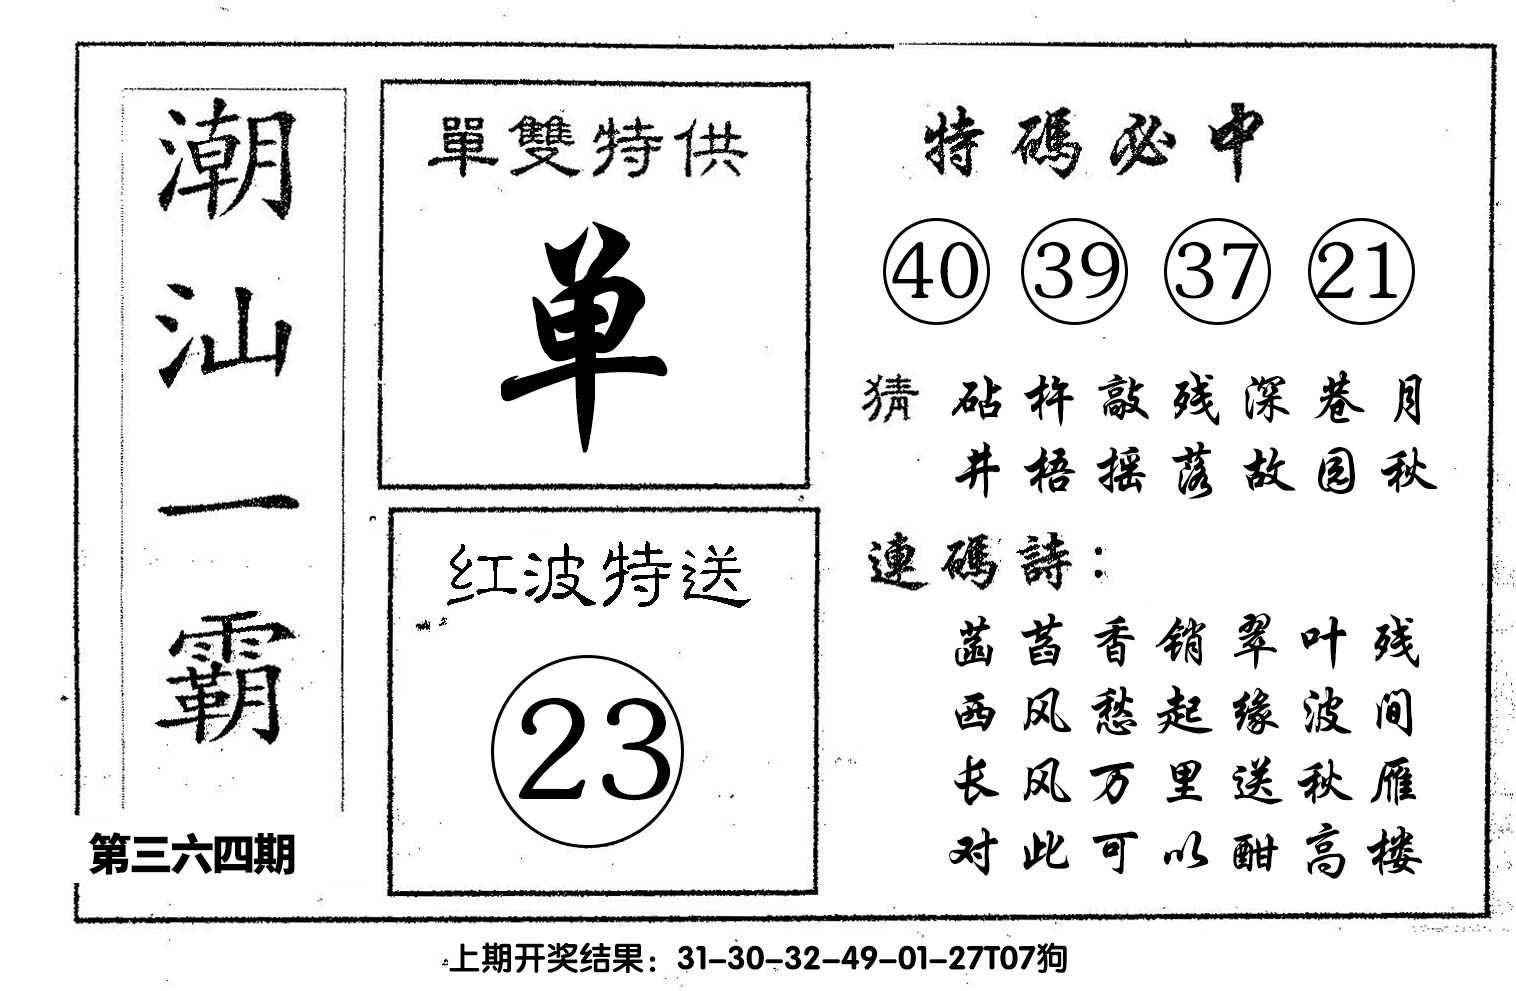 潮汕一霸
第三六四期
單雙特供
单
红波特送
23
特碼必中
40 39 37 21
猜 砧杵敲残深巷月
井梧摇落故园秋
連碼詩：
菡萏香销翠叶残
西风愁起缘波间
长风万里送秋雁
对此可以酣高楼
上期开奖结果：31-30-32-49-01-27T07狗